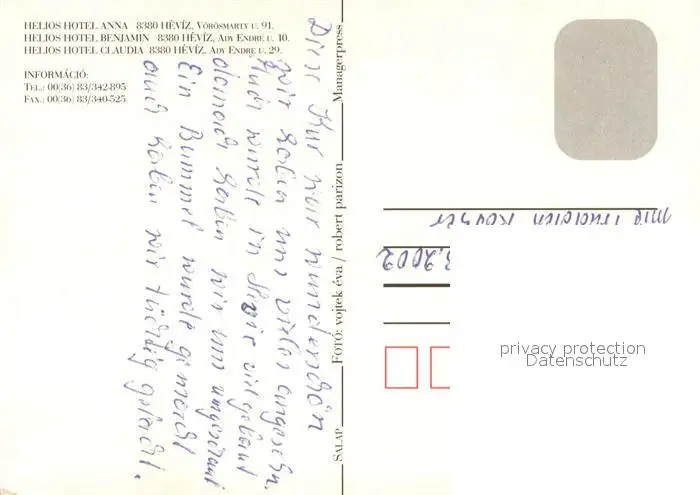 HELIOS HOTEL ANNA 8380 HÉVÍZ, VÖRÖSMARTY U. 91.
HELIOS HOTEL BENJAMIN 8380 HÉVÍZ, ADY ENDRE U. 10.
HELIOS HOTEL CLAUDIA 8380 HÉVÍZ, ADY ENDRE U. 29.
INFORMÁCIÓ:
TEL.: 00(36) 83/342-895
FAX.: 00(36) 83/340-525
Diese Kur war wunderschön
wir haben uns vieles angesehn.
Auch wurde in viel gebaut
danach haben wir uns umgeschaut
Ein Bummel wurde gemacht
auch haben wir tüchtig gelacht.
SALAP
FOTÓ: vojtek éva / robert parizon
Managerpress
3.2002
privacy protection
Datenschutz